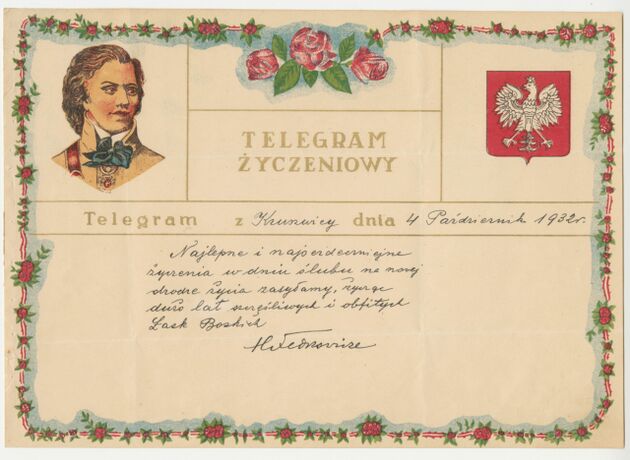 TELEGRAM
ŻYCZENIOWY
Telegram z Kruszwicy dnia 4 Październik 1932r.
Najlepsze i najserdeczniejsze
życzenia w dniu ślubu na nowej
drodze życia zasyłamy, życząc
dużo lat szczęśliwych i obfitych
Łask Boskich